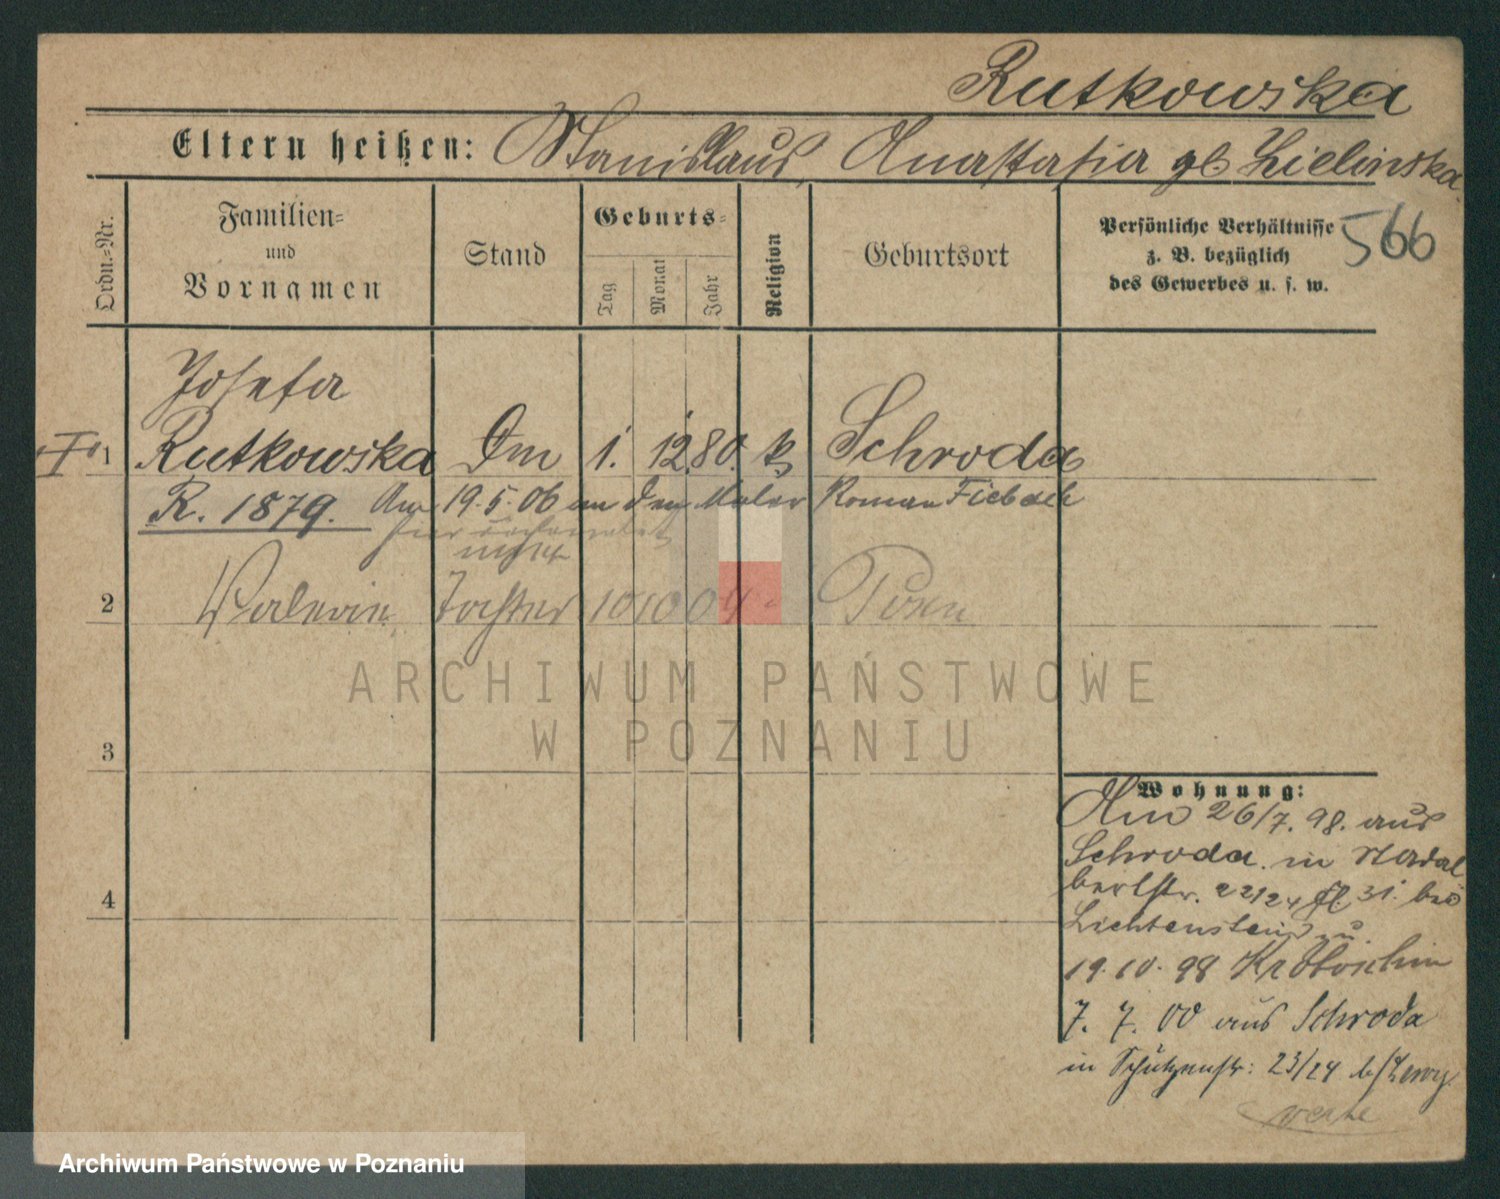 Rutkowska
Eltern heißen: Stanislaus, Anastasia gb Zielinska
566
Ordn.-Nr.
Familien-
und
Vornamen
Stand
Geburts-
Tag
Monat
Jahr
Religion
Geburtsort
Persönliche Verhältnisse
z. B. bezüglich
des Gewerbes u. s. w.
Josefa
1 Rutkowska Dm 1. 12. 80. k Schroda
R. 1879. Am 19.5.06 an den Maler Roman Fiebach
hier verheiratet
2 Valerie Tochter 10 10 04 Posen
3
4
Wohnung:
Am 26/7. 98. aus
Schroda in Adal
bertstr. 22/24 31. bei
Lichtenstein
19.10.98 Krotoschin
7. 7. 00 aus Schroda
in Schützenstr: 23/24 b/Lewy
ARCHIWUM PAŃSTWOWE
W POZNANIU
Archiwum Państwowe w Poznaniu